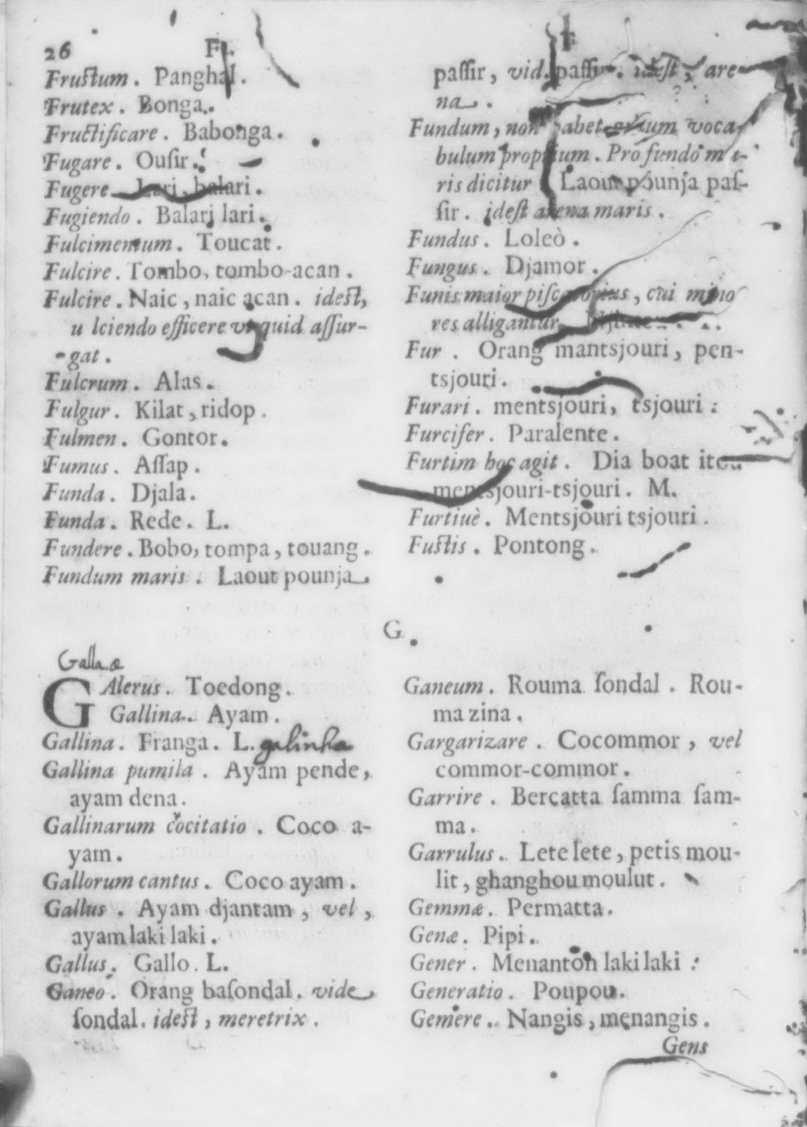 26 F.
Fruſtum. Panghal.
Frutex. Bonga.
Fructificare. Babonga.
Fugare. Ouſir.
Fugere. Lari, balari.
Fugiendo. Balari lari.
Fulcimentum. Toucat.
Fulcire. Tombo, tombo-acan.
Fulcire. Naic, naic acan. ideſt,
u lciendo efficere ut quid aſſur-
gat.
Fulcrum. Alas.
Fulgur. Kilat, ridop.
Fulmen. Gontor.
Fumus. Aſſap.
Funda. Djala.
Funda. Rede. L.
Fundere. Bobo, tompa, touang.
Fundum maris. Laout pounja
F
paſſir, vid. paſſir. ideſt, are-
na.
Fundum, non habet voca-
bulum proprium. Pro fundo ma-
ris dicitur Laout pounja paſ-
ſir. ideſt arena maris.
Fundus. Loleò.
Fungus. Djamor.
Funis maior piſcatorius, cui mino
res alligantur.
Fur. Orang mantsjouri, pen-
tsjouri.
Furari. mentsjouri, tsjouri.
Furcifer. Paralente.
Furtim hoc agit. Dia boat itou
mentsjouri-tsjouri. M.
Furtiuè. Mentsjouri tsjouri.
Fuſtis. Pontong.
G.
Gallæ
GAlerus. Toedong.
Gallina. Ayam.
Gallina. Franga. L. galinha
Gallina pumila. Ayam pende,
ayam dena.
Gallinarum cocitatio. Coco a-
yam.
Gallorum cantus. Coco ayam.
Gallus. Ayam djantam, vel,
ayam laki laki.
Gallus. Gallo. L.
Ganeo. Orang baſondal. vide
ſondal. ideſt, meretrix.
Ganeum. Rouma ſondal. Rou-
ma zina.
Gargarizare. Cocommor, vel
commor-commor.
Garrire. Bercatta ſamma ſam-
ma.
Garrulus. Lete lete, petis mou-
lit, ghanghou moulut.
Gemmæ. Permatta.
Genæ. Pipi.
Gener. Menanton laki laki.
Generatio. Poupou.
Gemere. Nangis, menangis.
Gens